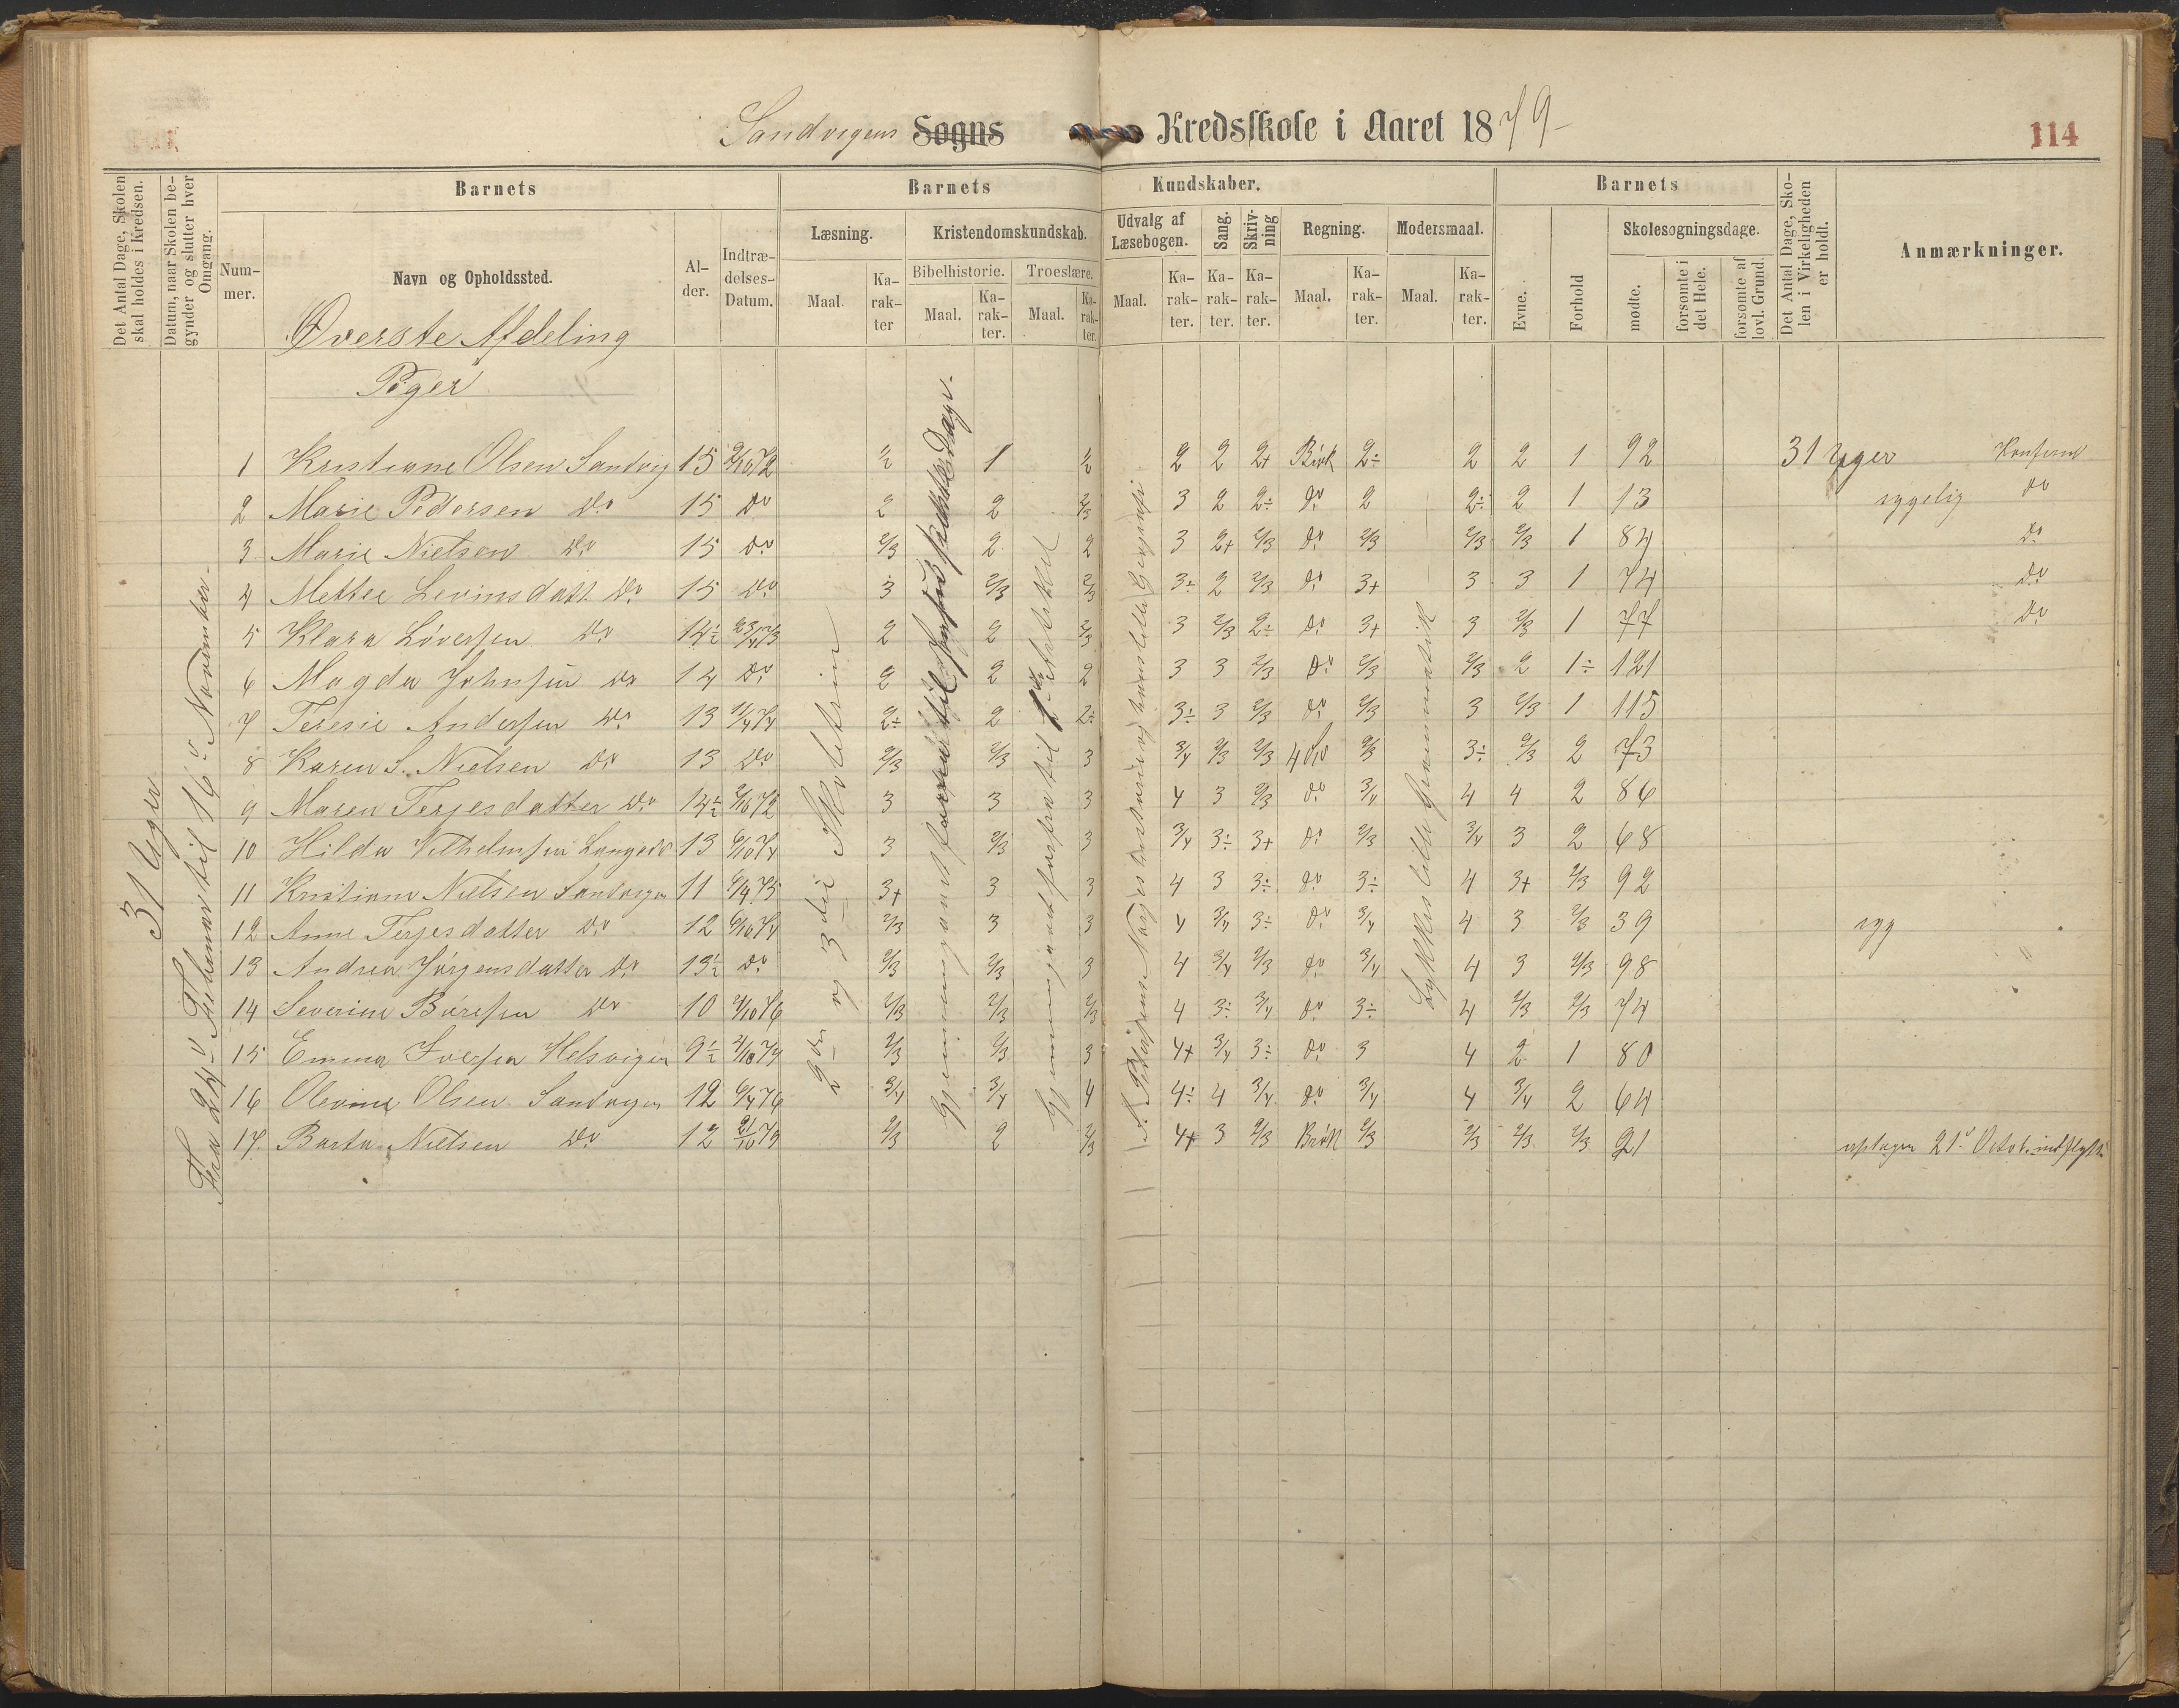 Sandvigens Sogns Kredsskole i Aaret 1879
114
Det Antal Dage, Skolen skal holdes i Kredsen.
Datum, naar Skolen begynder og slutter hver Omgang.
Barnets
Barnets Kundskaber.
Barnets
Det Antal Dage, Skolen i Virkeligheden er holdt.
Anmærkninger.
Nummer.
Navn og Opholdssted.
Alder.
Indtrædelses-Datum.
Læsning.
Kristendomskundskab.
Udvalg af Læsebogen.
Sang.
Skrivning
Regning.
Modersmaal.
Evne.
Forhold
Skolesøgningsdage.
Maal.
Karakter
Bibelhistorie.
Troeslære.
Maal.
Karakter.
Maal.
Karakter.
Maal.
Karakter.
Karakter.
Karakter.
Maal.
Karakter.
Maal.
Karakter.
mødte.
forsømte i det Hele.
forsømte af lovl. Grund.
Øverste Afdeling
Piger
31 Uger
Fra 24de Februar til 16de November
2den og 3die Skoletrin
1 Kristiane Olsen Sandvig 15 2/10 72 ½ 1 ½ 2 2 2+ Brøk 2÷ 2 2 1 92 31 Uger Konfirm
2 Marie Pedersen Do 15 Do 2 2 2/3 3 2 2÷ Do 2 2÷ 2 1 13 sygelig Do
3 Marie Nielsen Do 15 Do 2/3 2 2 3 2+ 2/3 Do 2/3 2/3 2/3 1 84 Do
4 Mette Levinsdatt. Do 15 Do 3 2/3 2/3 3÷ 2 2/3 Do 3+ 3 3 1 74 Do
5 Klara Løversen Do 14½ 23/4 73 2 2 2/3 3 2/3 2÷ Do 3+ 3 2/3 1 77 Do
6 Magda Johnsen Do 14 Do 2 2 2 3 3 2/3 Do 2/3 2/3 2 1÷ 121
7 Teresie Andersen Do 13 11/4 74 2÷ 2 2÷ 3÷ 3 2/3 Do 2/3 3 2/3 1 115
8 Karen S. Nielsen Do 13 Do 2/3 2/3 3 3/4 2/3 2/3 2/3 3÷ 2/3 2 73
9 Maren Terjesdatter Do 14½ 2/10 72 3 3 3 4 3 2/3 Do 3/4 4 4 2 86
10 Hilda Vilhelmsen 13 6/10 74 3 2/3 3 3/4 3÷ 3+ Do 2/3 3/4 3 2 68
11 Kristiane Nielsen Sandvigen 11 6/4 75 3+ 3 3 4 3 3÷ Do 3÷ 4 3+ 2/3 92
12 Anne Terjesdatter Do 12 6/10 74 2/3 3 3 4 3/4 3÷ Do 3/4 4 3 2/3 39 syg
13 Andrea Jørgensdatter Do 13½ Do 2/3 2/3 3 4 3/4 2/3 Do 3/4 4 3 2/3 98
14 Severine Do 10 2/10 76 2/3 2/3 2/3 4 3÷ 3/4 Do 3÷ 4 2/3 2/3 74
15 Emma Iversen Helsvigen 9½ 2/3 2/3 3 4+ 3/4 3÷ Do 3 4 2 1 80
16 Olevine Olsen Sandvigen 12 6/4 76 3/4 3/4 4 4÷ 4 3/4 Do 3/4 4 3/4 2 64
17. Berta Nielsen Do 12 21/10 79 2/3 2 2/3 4+ 3 2/3 Brøk 2/3 2/3 2/3 2/3 21 optagen 21de Octob. indflyttet